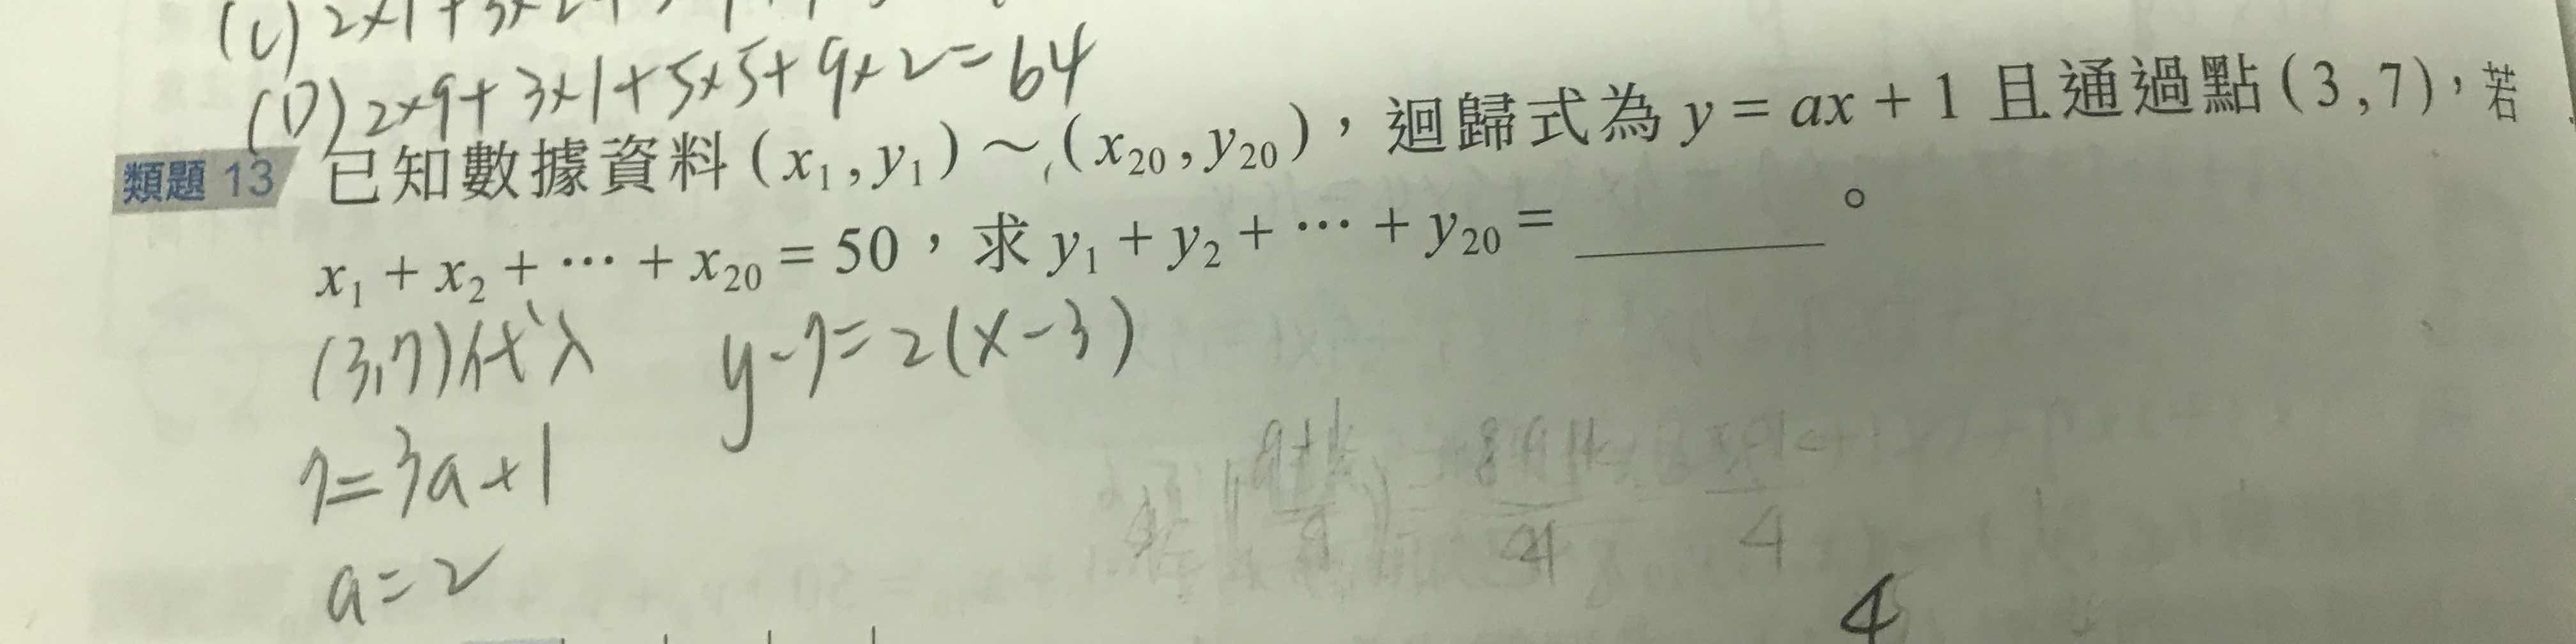 (C) 2×1+3×2+5
(D) 2×9+3×1+5×5+9×2=64
類題 13 已知數據資料(x₁,y₁)～(x₂₀,y₂₀)，迴歸式為y=ax+1且通過點(3,7)，若
x₁+x₂+⋯+x₂₀=50，求y₁+y₂+⋯+y₂₀=______。
(3,7)代入 y-7=2(x-3)
7=3a+1
a=2
4